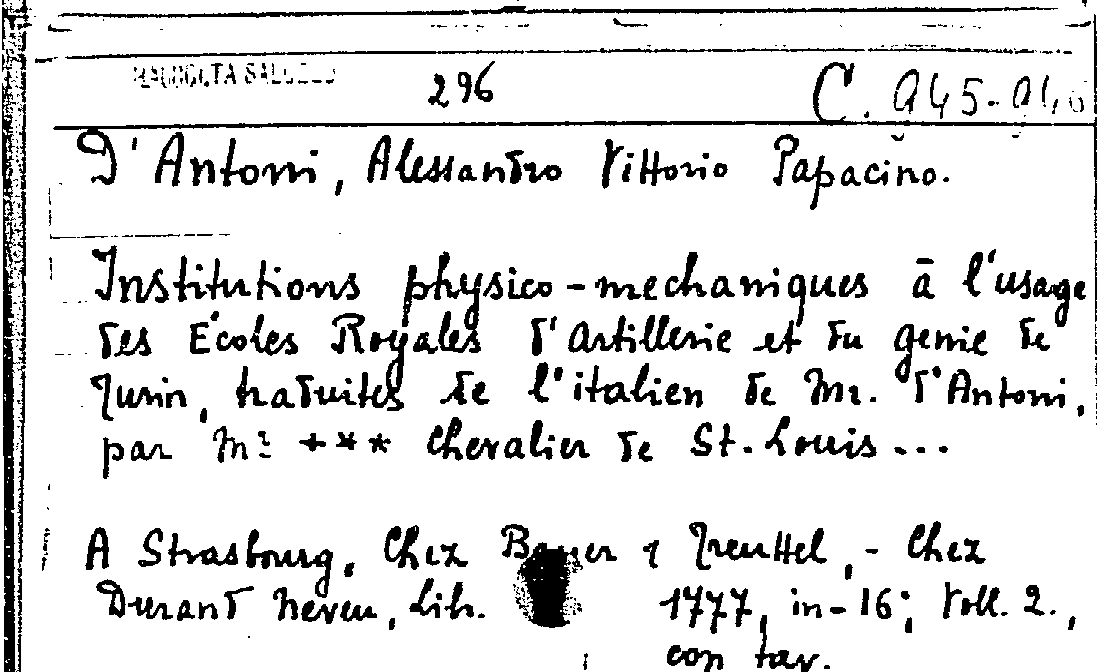 RACCOLTA SALUZZO 296 C. 945-946
D'Antoni, Alessandro Vittorio Papacino.
Institutions physico-mechaniques à l'usage
des Ecoles Royales d'Artillerie et du genie de
Turin, traduites de l'italien de Mr. d'Antoni,
par Mr *** Chevalier de St. Louis...
A Strasbourg, Chez Bauer & Treuttel, - Chez
Durand Neveu, Lib. 1777, in-16; Voll. 2.,
con tav.